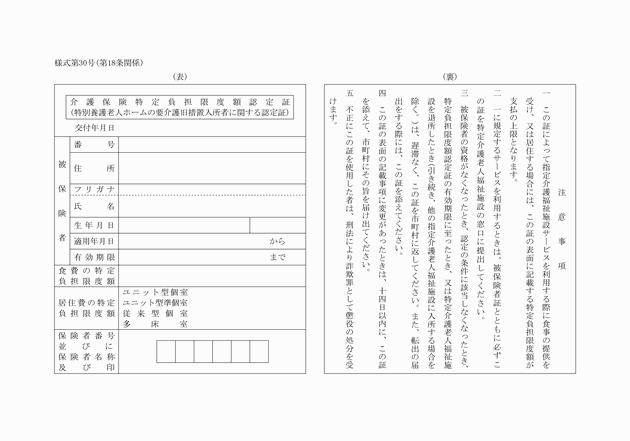 様式第30号(第18条関係)
(表)
介護保険特定負担限度額認定証
(特別養護老人ホームの要介護旧措置入所者に関する認定証)
交付年月日
被保険者
番号
住所
フリガナ
氏名
生年月日
適用年月日 から
有効期限 まで
食費の特定
負担限度額
居住費の特定
負担限度額
ユニット型個室
ユニット型準個室
従来型個室
多床室
保険者番号
並びに
保険者名称
及び印
(裏)
注意事項
一 この証によって指定介護福祉施設サービスを利用する際に食事の提供を
受け、又は居住する場合には、この証の表面に記載する特定負担限度額が
支払の上限となります。
二 一に規定するサービスを利用するときは、被保険者証とともに必ずこ
の証を特定介護老人福祉施設の窓口に提出してください。
三 被保険者の資格がなくなったとき、認定の条件に該当しなくなったとき、
特定負担限度額認定証の有効期限に至ったとき、又は特定介護老人福祉施
設を退所したとき(引き続き、他の指定介護老人福祉施設に入所する場合を
除く。)は、遅滞なく、この証を市町村に返してください。また、転出の届
出をする際には、この証を添えてください。
四 この証の表面の記載事項に変更があったときは、十四日以内に、この証
を添えて、市町村にその旨を届け出てください。
五 不正にこの証を使用した者は、刑法により詐欺罪として懲役の処分を受
けます。